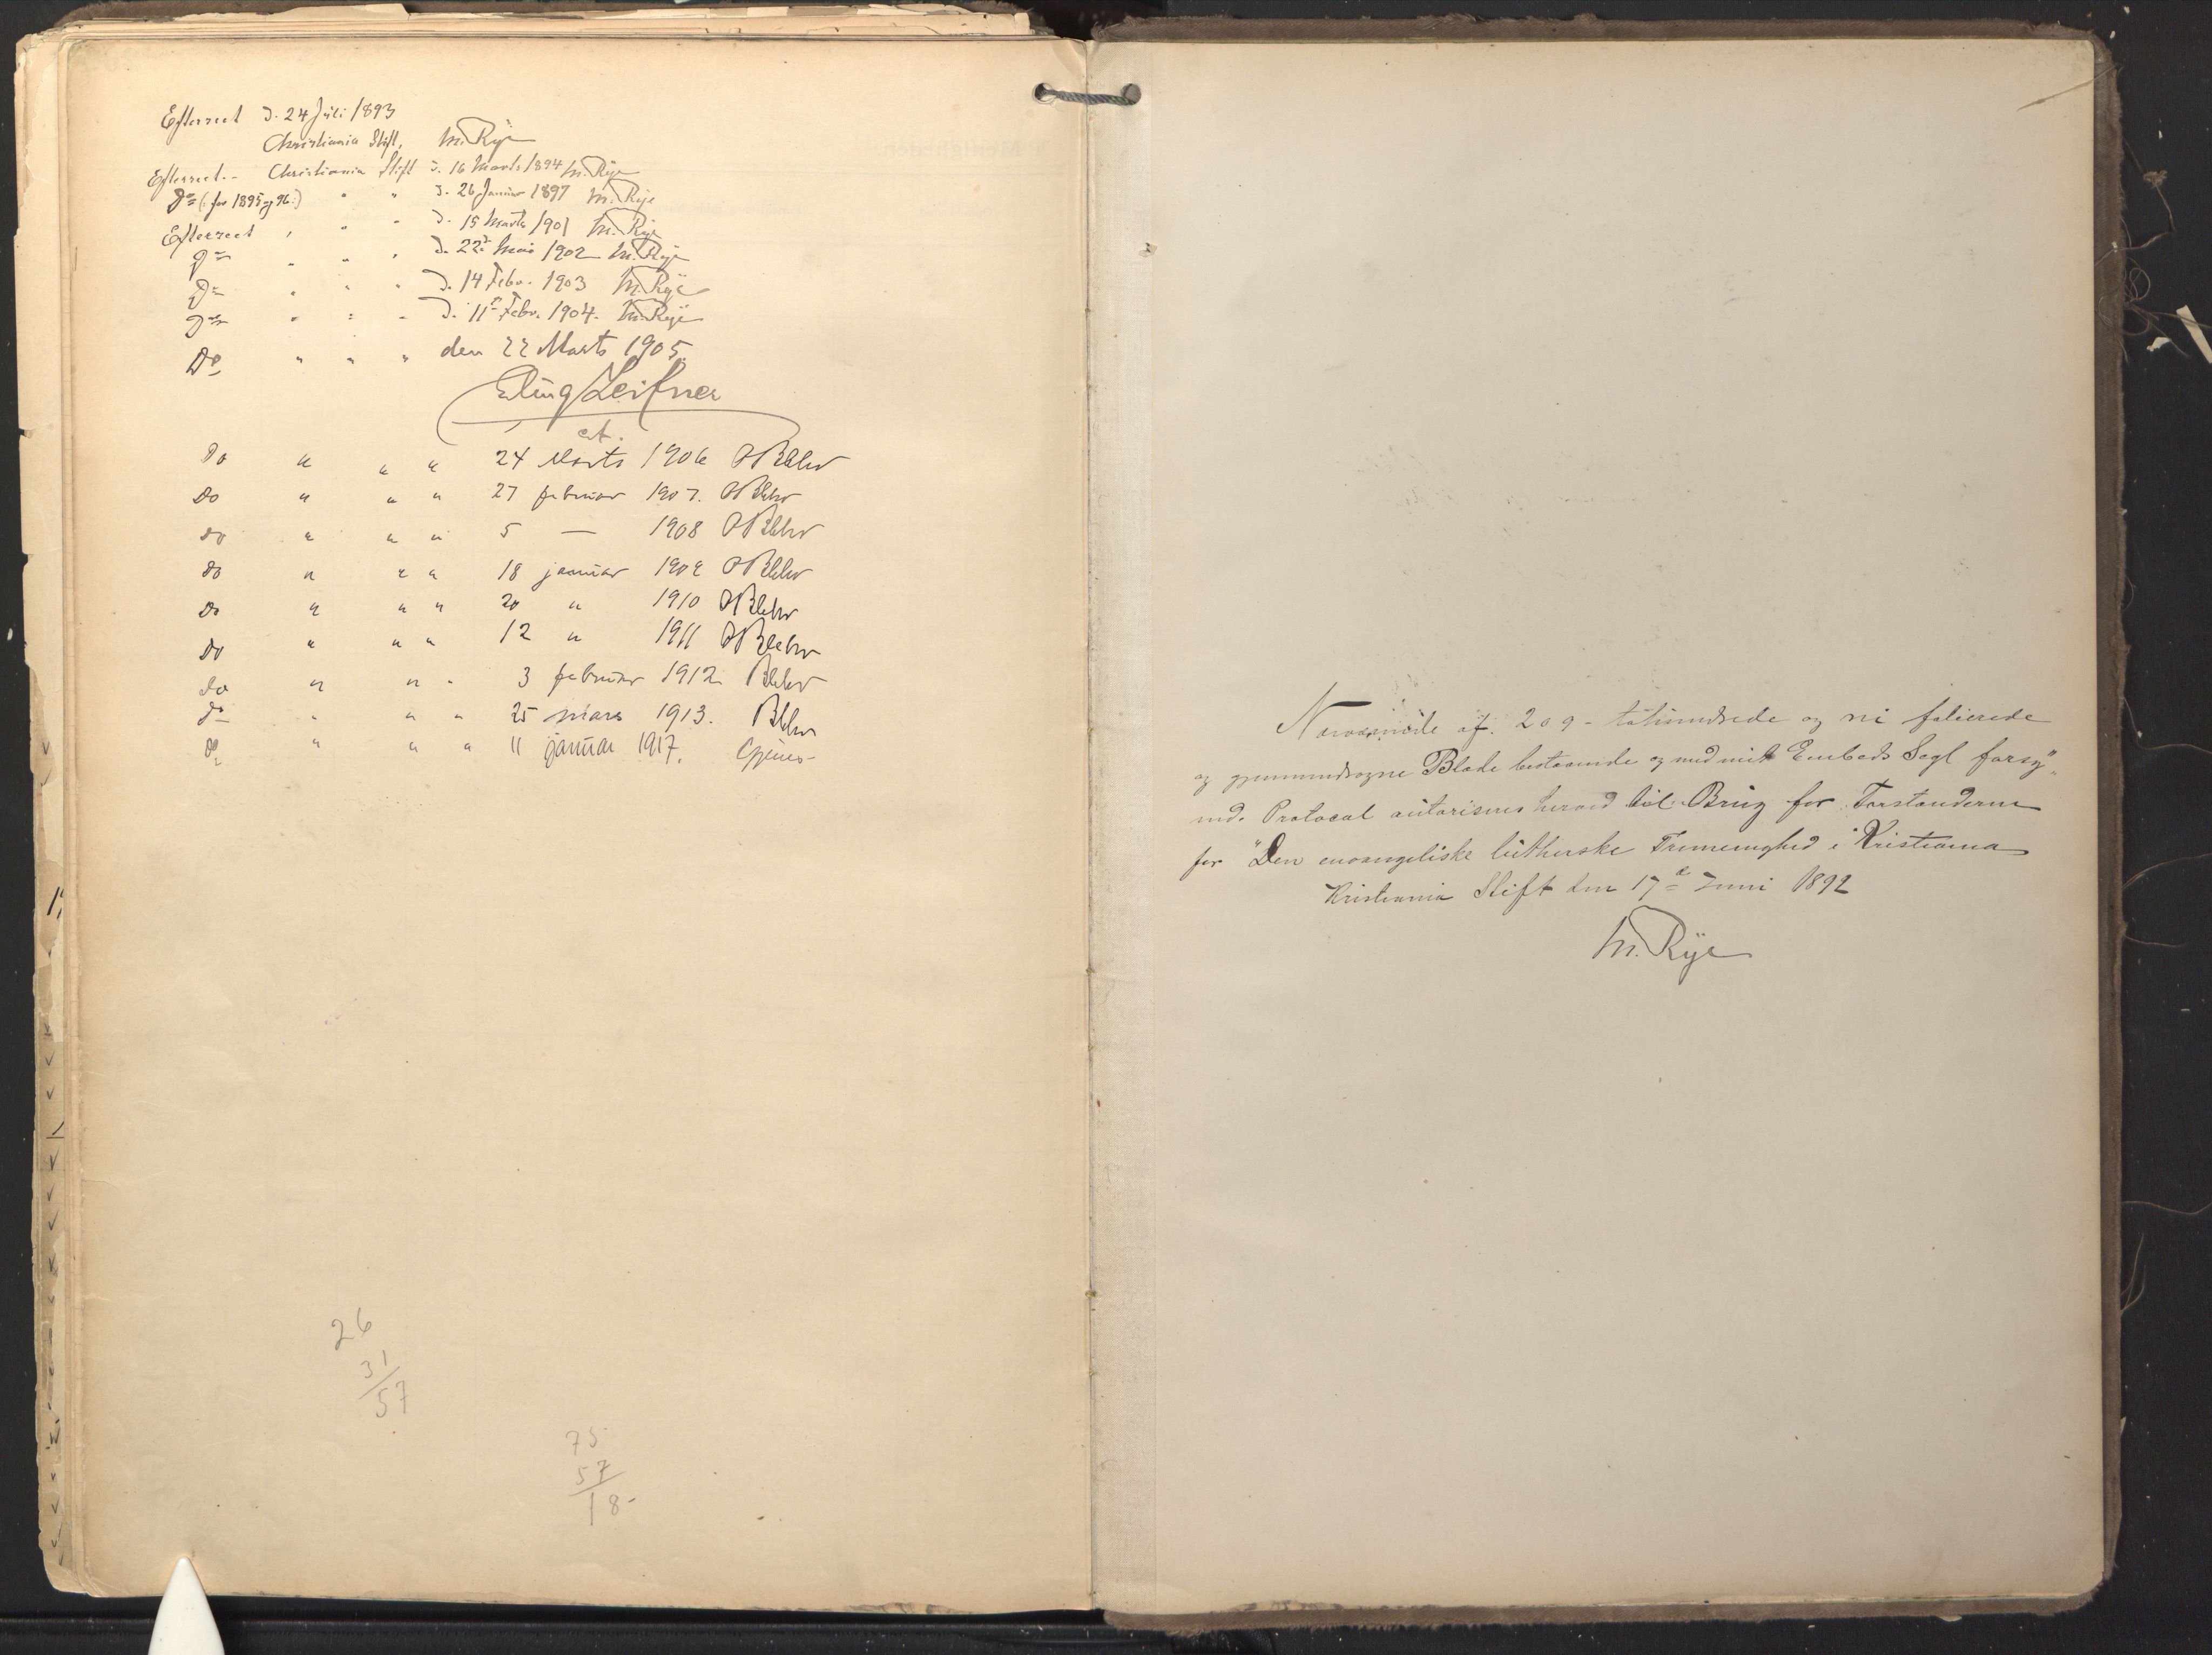 Efterseet d. 24 Juli 1893
Christiania Stift, M. Rye
Efterseet.- Christiania Stift d. 16 Marts 1894 M. Rye
Do (: for 1895 og 96:) " " d. 26 Januar 1897 M. Rye
Efterseet " " " d. 15 Marts 1901 M. Rye
Do " " " d. 22de Mai 1902 M. Rye
Do " " " d. 14 Febr. 1903 M. Rye
Do " " " d. 11te Febr. 1904. M. Rye
Do " " " den 22 Marts 1905.
cst.
Do " " " 24 Marts 1906
Do " " " 27 februar 1907.
do " " " 5 — 1908
do " " " 18 januar 1909
Do " " " 20 " 1910
Do " " " 12 " 1911
do " " " 3 februar 1912
do " " " 25 mars 1913.
do " " " 11 januar 1917.
26
31
57
75
57
18
Nærværende af 209 - tohundrede og ni folierede
og gjennemdragne Blade bestaaende og med mit Embeds Segl forsy„
nede Protocol autoriseres herved til Brug for Forstanderne
for "Den evangeliske lutherske Frimenighed i Kristiania
Kristiania Stift den 17de Juni 1892
M. Rye